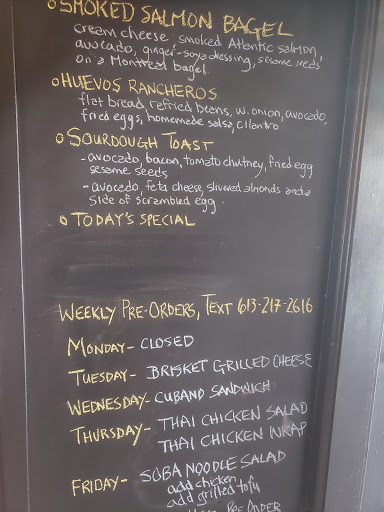 o SMOKED SALMON BAGEL
cream cheese, smoked Atlantic salmon,
avocado, ginger-soya dressing, sesame seeds
on a Montreal bagel.
o HUEVOS RANCHEROS
flat bread, refried beans, w. onion, avocado,
fried eggs, homemade salsa, cilantro
o SOURDOUGH TOAST
- avocado, bacon, tomato chutney, fried egg
sesame seeds
- avocado, feta cheese, slivered almonds and a
side of scrambled egg.
o TODAY'S SPECIAL
WEEKLY PRE-ORDERS, TEXT 613-217-2616
MONDAY- CLOSED
TUESDAY- BRISKET GRILLED CHEESE
WEDNESDAY- CUBANO SANDWICH
THURSDAY- THAI CHICKEN SALAD
THAI CHICKEN WRAP
FRIDAY- SOBA NOODLE SALAD
add chicken
add grilled tofu
PRE-ORDER